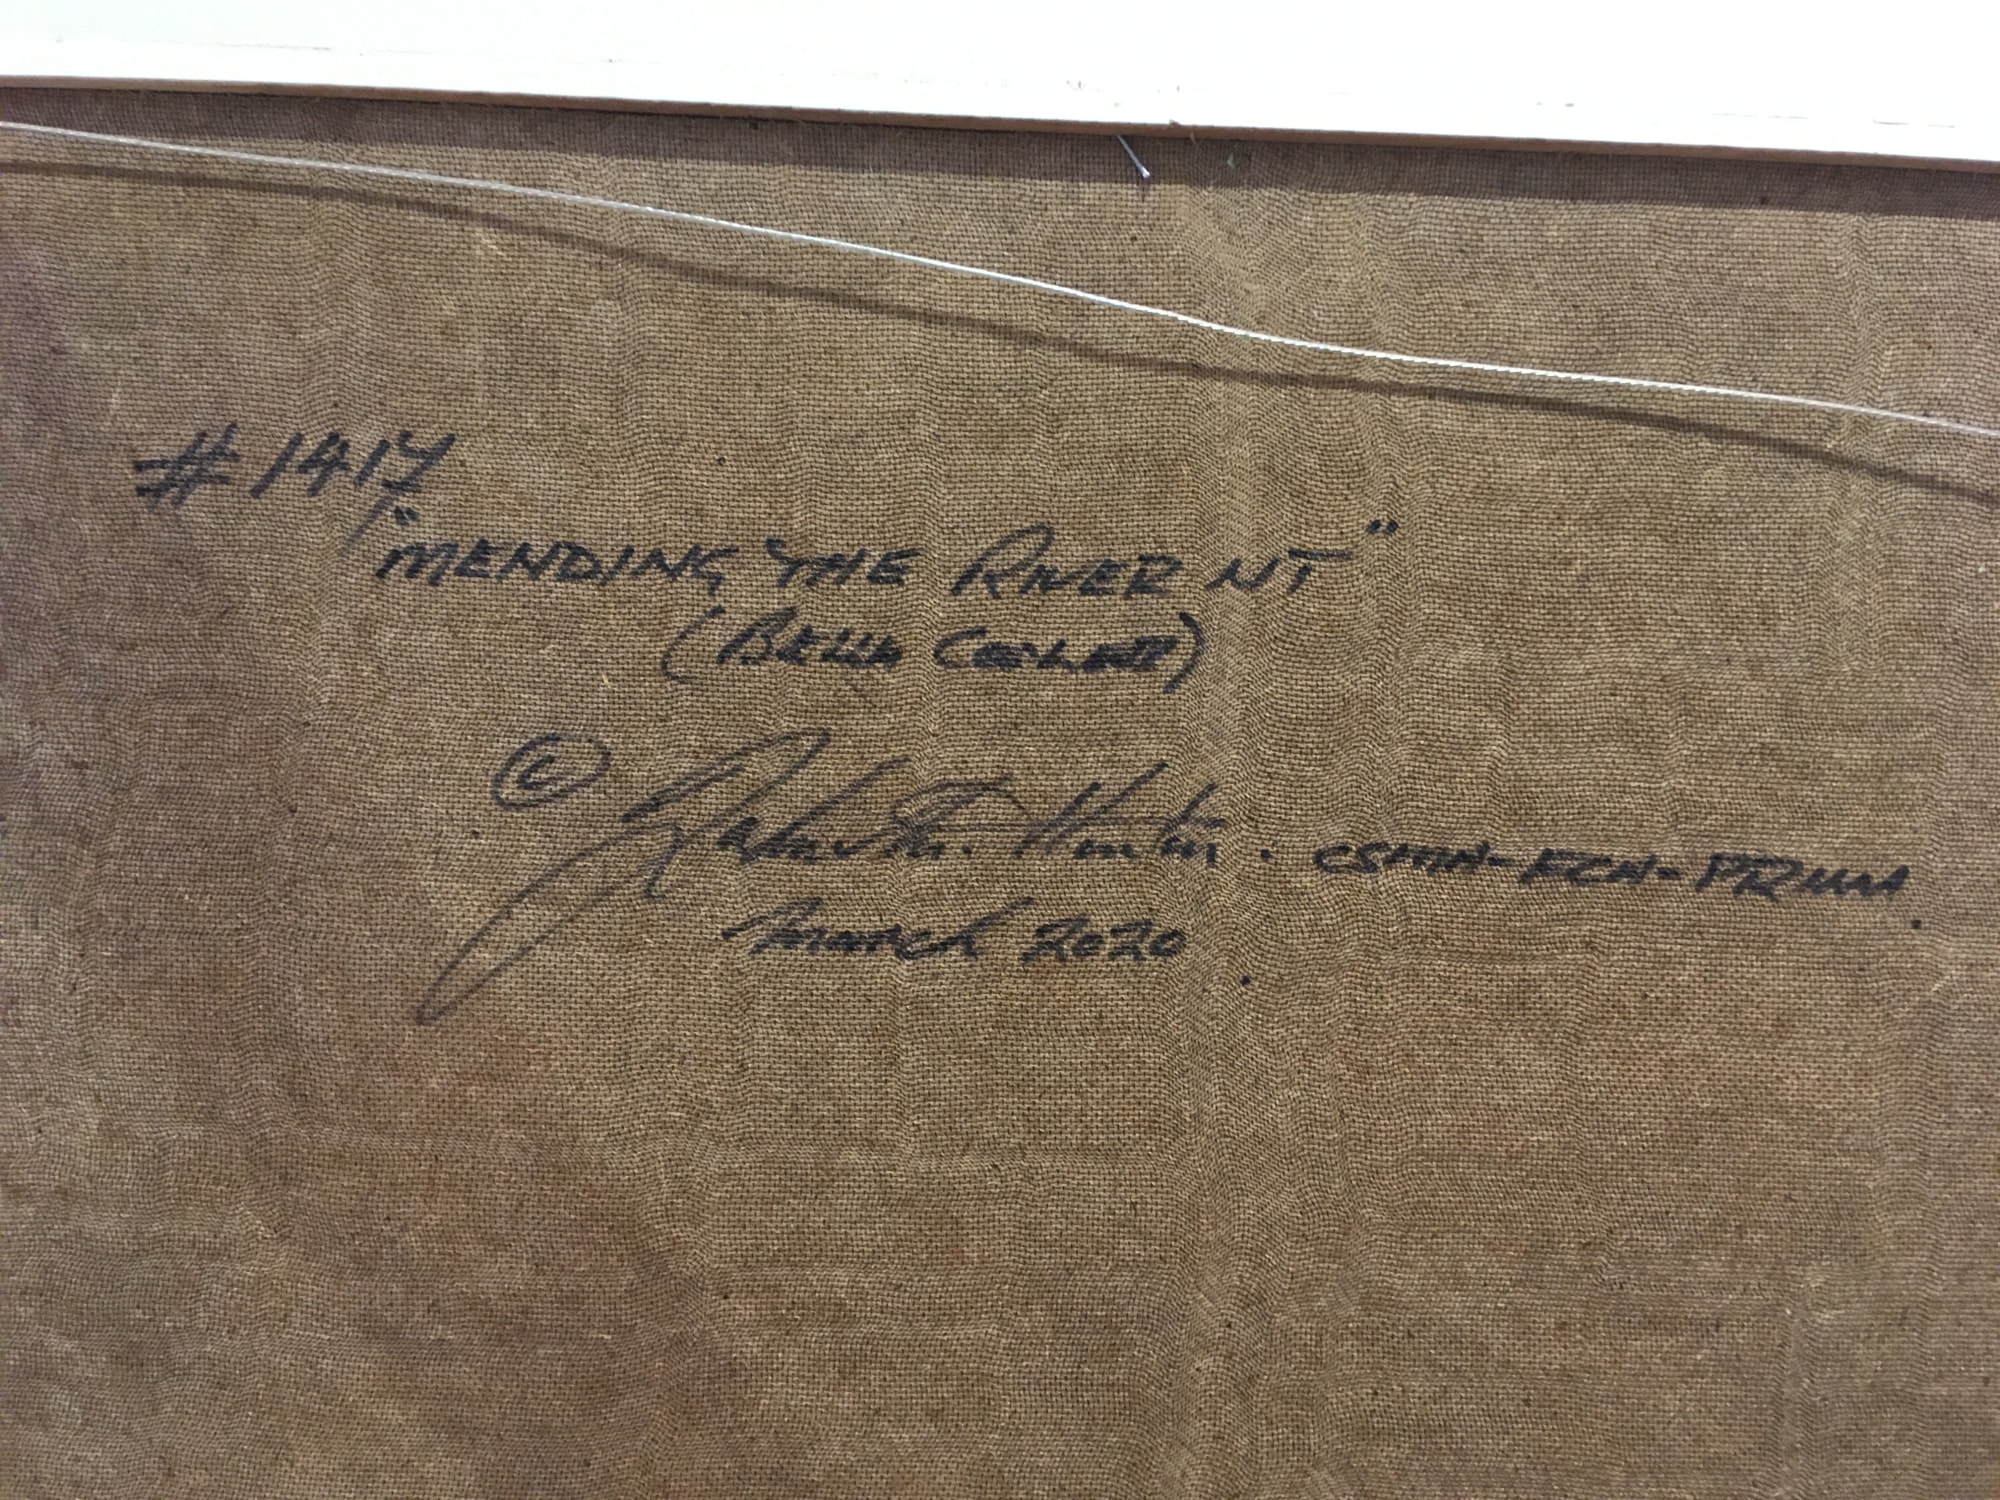 #1417
"MENDING THE RIVER NT"
(BELLA COOLA)
© Hunter. CSMA-FCA-
March 2020.